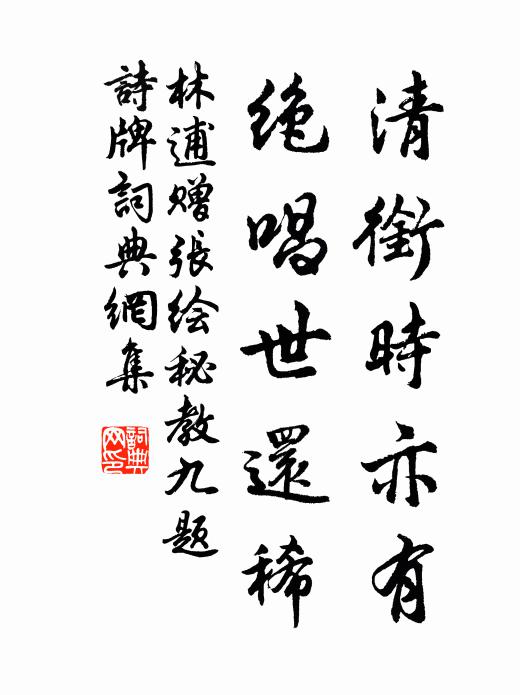 清銜時亦有
絶唱世還稀
林逋贈張绘秘教九题
詩牌詞典網集
詞典
网印